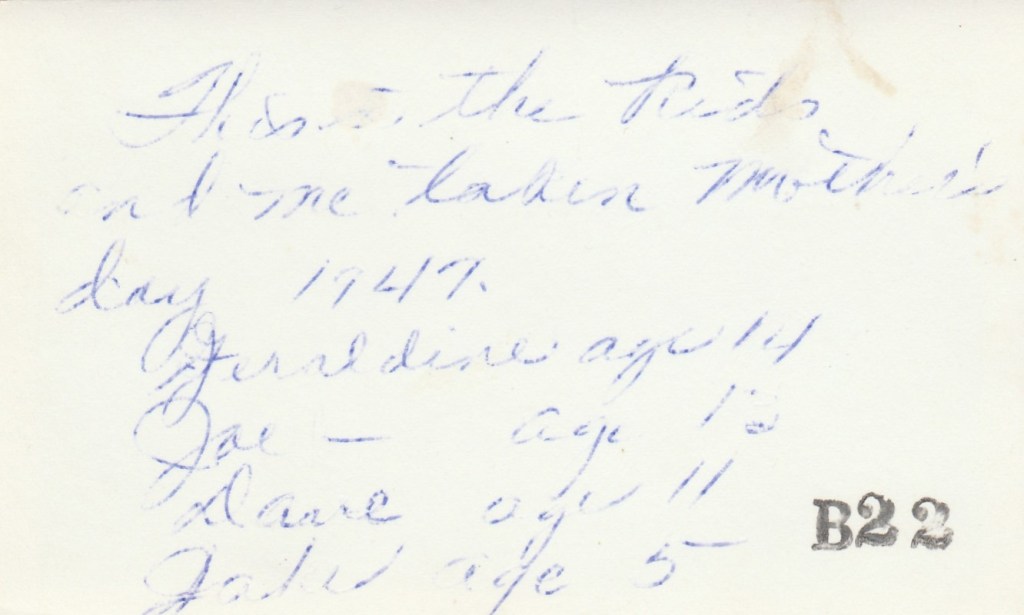 This is the Kids
and me taken Mother's
day 1947.
Gerreldine age 14
Joe — age 13
Dave age 11
Jake age 5
B22